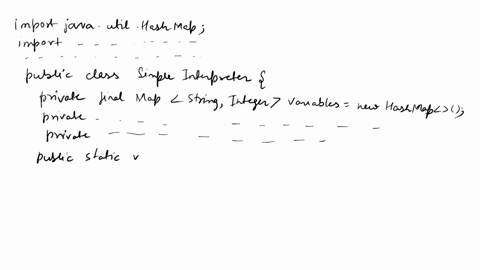 import java.util.HashMap;
import _ _ _ _ _ _ _ _
_ _ _ _ _ _ _ _ _ _ _
public class Simple Interpreter {
private final Map < String, Integer > variables = new HashMap<>();
private _ _ _ _ _ _ _ _ _ _
private _ _ _ _ _ _ _ _
public static v